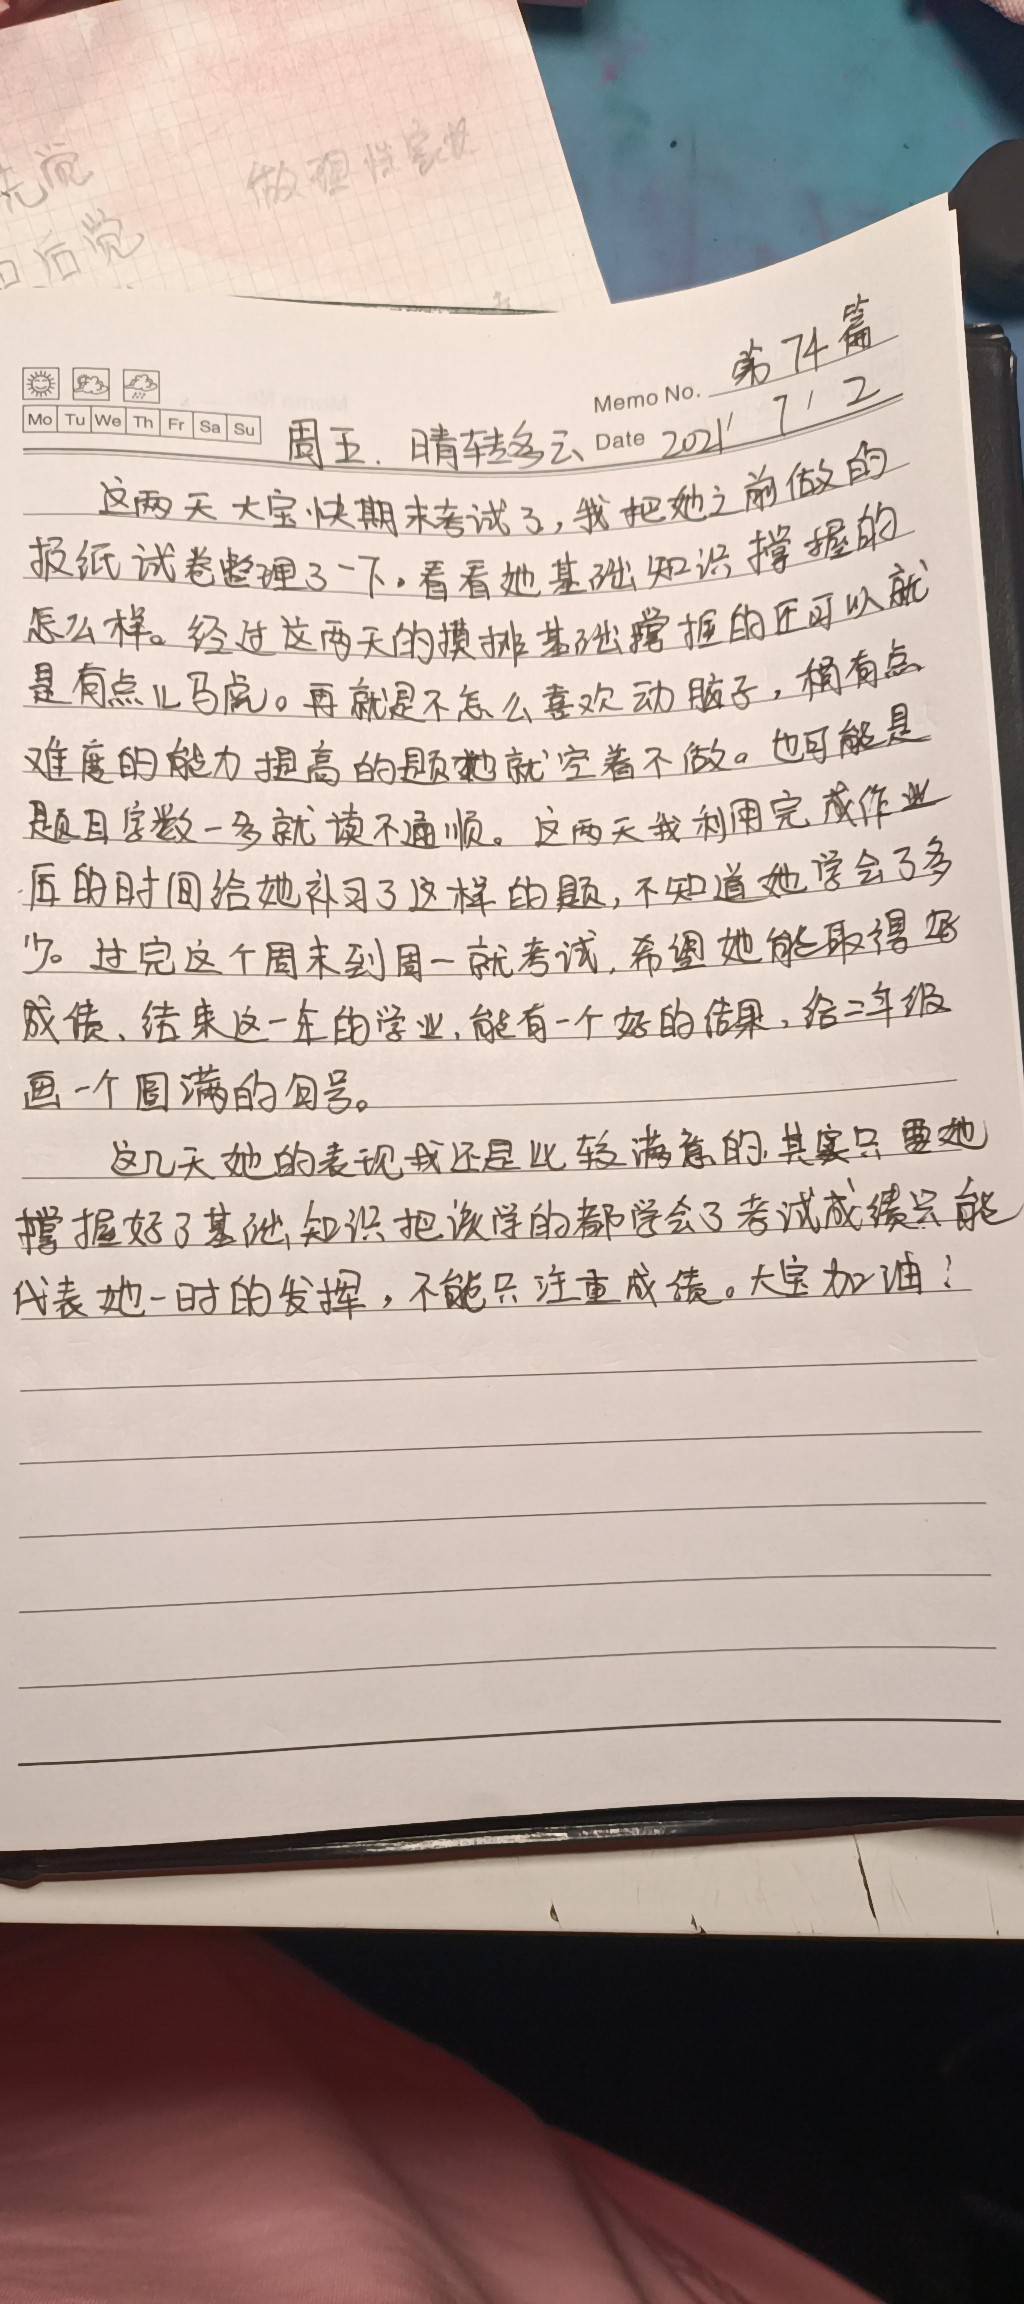 做理性家长
先觉
后觉
第74篇
Memo No.
Mo Tu We Th Fr Sa Su
周五. 晴转多云 Date 2021/7/2
这两天大宝快期末考试了,我把她之前做的
报纸试卷整理了一下。看看她基础知识撑握的
怎么样。经过这两天的摸排基础撑握的还可以就
是有点儿马虎。再就是不怎么喜欢动脑子,稍有点
难度的能力提高的题她就空着不做。也可能是
题目字数一多就读不通顺。这两天我利用完成作业
后的时间给她补习了这样的题,不知道她学会了多
少。过完这个周末到周一就考试,希望她能取得好
成绩、结束这一年的学业,能有一个好的结果,给二年级
画一个圆满的句号。
这几天她的表现我还是比较满意的,其实只要她
撑握好了基础知识把该学的都学会了考试成绩只能
代表她一时的发挥,不能只注重成绩。大宝加油!